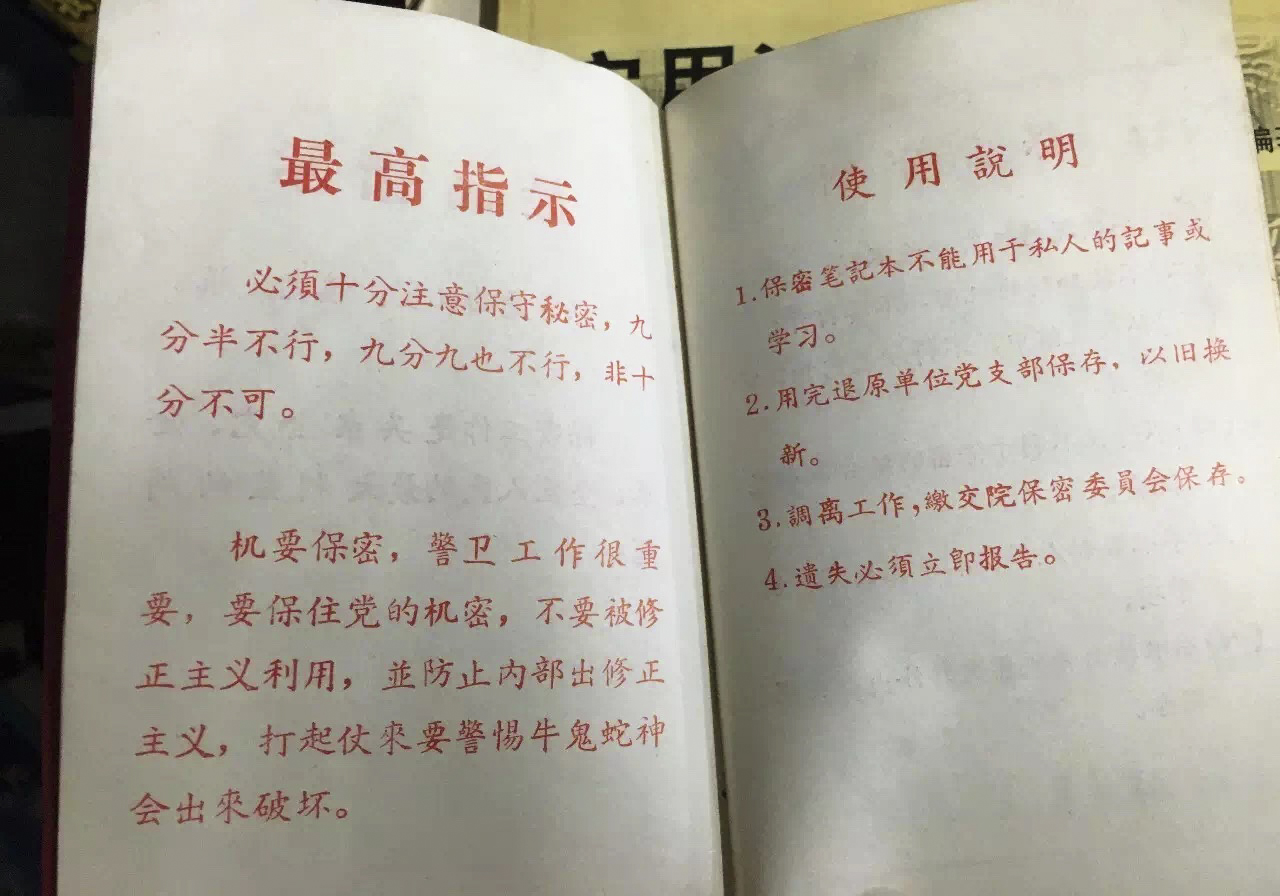 最高指示
必須十分注意保守秘密，九
分半不行，九分九也不行，非十
分不可。
机要保密，警卫工作很重
要，要保住党的机密，不要被修
正主义利用，並防止内部出修正
主义，打起仗來要警惕牛鬼蛇神
会出來破坏。
使用說明
1.保密笔記本不能用于私人的記事或
学习。
2.用完退原单位党支部保存，以旧换
新。
3.調离工作，繳交院保密委員会保存。
4.遺失必須立即报告。